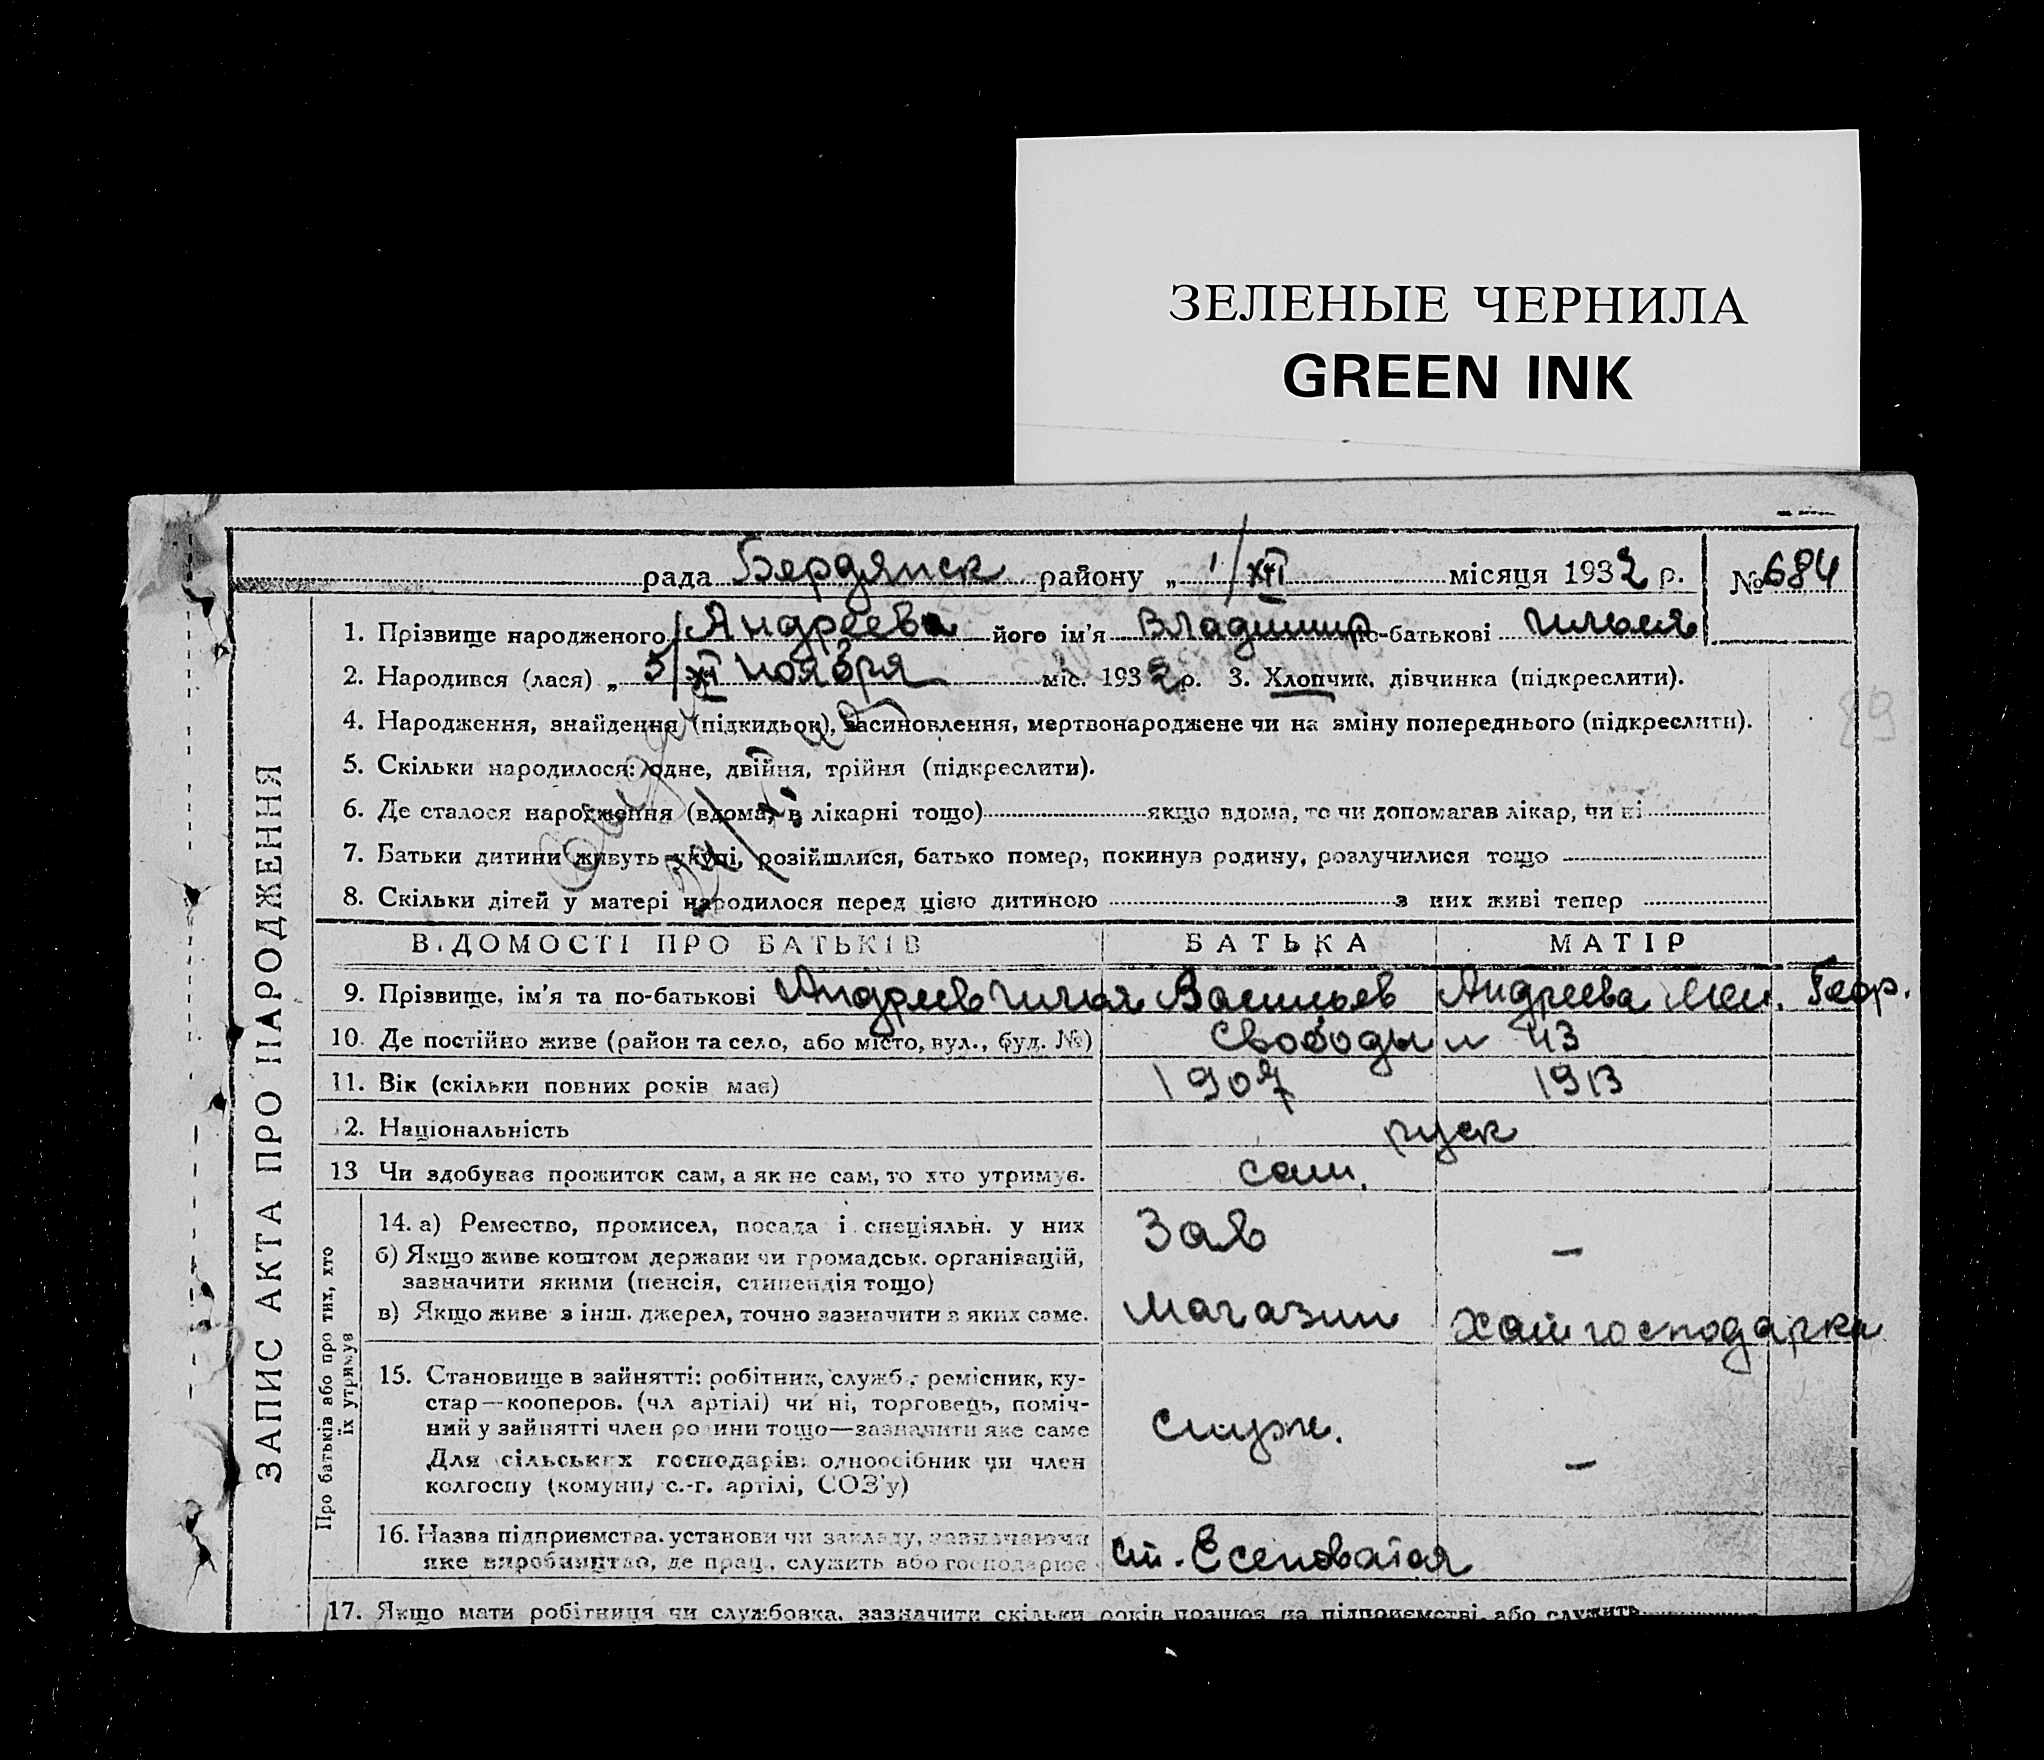 ЗЕЛЕНЫЕ ЧЕРНИЛА
GREEN INK
рада Бердянск району „ 1/XII місяця 1932 р. № 684
1. Прізвище народженого Андреев його ім'я Владимир по-батькові Ильич
2. Народився (лася) „ 5/XI ноября міс. 1932 р. 3. Хлопчик, дівчинка (підкреслити).
4. Народження, знайдення (підкидьок), засиновлення, мертвонароджене чи на зміну попереднього (підкреслити).
5. Скільки народилося: одне, двійня, трійня (підкреслити).
6. Де сталося народження (вдома, в лікарні тощо) якщо вдома, то чи допомагав лікар, чи ні
7. Батьки дитини живуть укупі, розійшлися, батько помер, покинув родину, розлучилися тощо
8. Скільки дітей у матері народилося перед цією дитиною з них живі тепер
89
ВІДОМОСТІ ПРО БАТЬКІВ БАТЬКА МАТІР
9. Прізвище, ім'я та по-батькові Андреев Илья Васильев Андреева Геор.
10. Де постійно живе (район та село, або місто, вул., буд. №) Свободы 43
11. Вік (скільки повних років має) 1907 1913
12. Національність руск
13 Чи здобуває прожиток сам, а як не сам, то хто утримує. сам.
14. а) Ремество, промисел, посада і спеціяльн. у них Зав —
б) Якщо живе коштом держави чи громадськ. організацій,
зазначити якими (пенсія, стипендія тощо)
в) Якщо живе з інш. джерел, точно зазначити з яких саме. Магазин господарка
15. Становище в зайнятті: робітник, служб., ремісник, ку-
стар—кооперов. (чл артілі) чи ні, торговець, поміч-
ний у зайнятті член родини тощо—зазначити яке саме служ. —
Для сільських господарів: одноосібник чи член
колгоспу (комуни, с.-г. артілі, СОЗ'у)
16. Назва підприємства, установи чи закладу, зазначаючи
яке виробництво, де прац., служить або господарює ст. Есеноватая
17. Якщо мати робітниця чи службовка, зазначити скільки років працює на підприємстві або служить
ЗАПИС АКТА ПРО НАРОДЖЕННЯ
Про батьків або про тих, хто
їх утримує